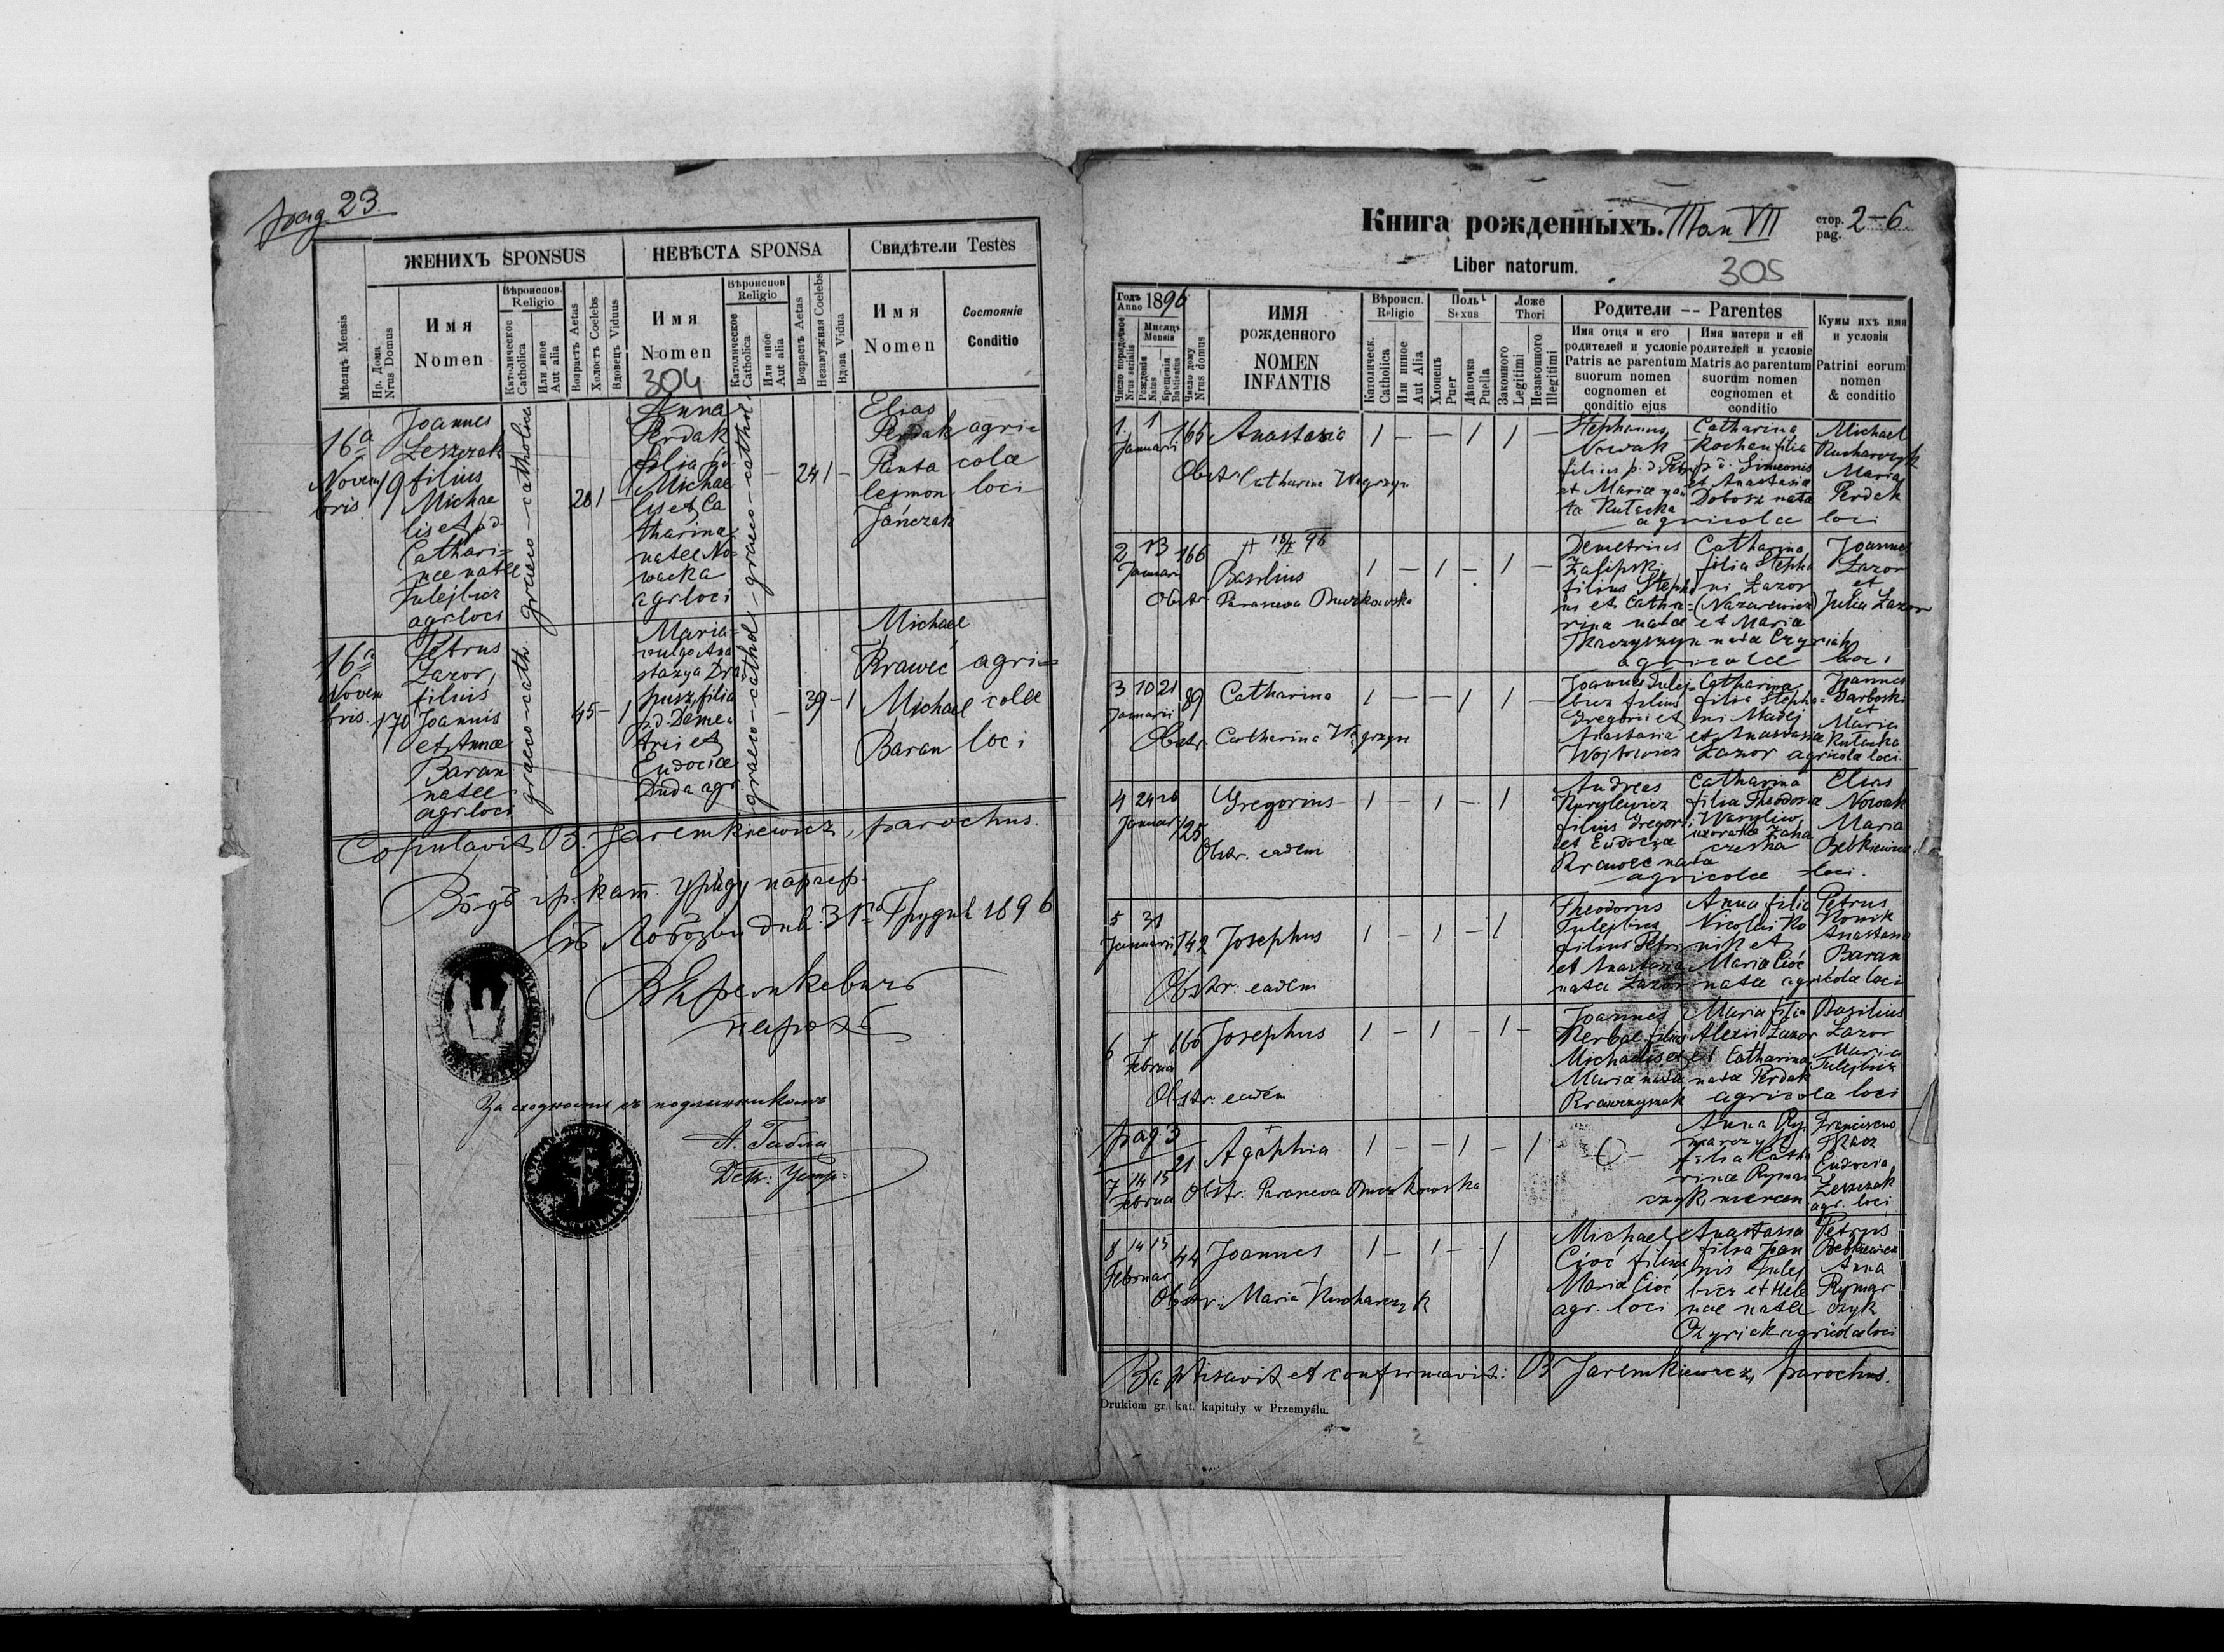 pag 23.
ЖЕНИХЪ SPONSUS
НЕВѢСТА SPONSA
Свидѣтели Testes
Мѣсяцъ Mensis
Нр. Дома
Nrus Domus
Имя
Nomen
Вѣроиспов.
Religio
Католическое
Catholica
Или иное
Aut alia
Возрастъ Aetas
Холостъ Coelebs
Вдовецъ Viduus
Имя
Nomen
304
Вѣроиспов
Religio
Католическое
Catholica
Или иное
Aut alia
Возрастъ Aetas
Незамужная Coelebs
Вдова Vidua
Имя
Nomen
Состояніе
Conditio
16a
Novem
bris
19
Joannes
Leszczak
filius
Michae
lis et pd
Cathari=
nae natae
Tulejbicz
agr loci
graeco-catholica
Anna
Perdak
filia pd
Michae
lis et Ca
tharina
natae No=
wacka
agr loci
graeco-cathol
24 1 -
Elias
Perdak
Panta
lejmon
Jańczak
agri=
colae
loci
16a
Novem
bris
170
Petrus
Łazor,
filius
Joannis
et Annae
Baran
natae
agr loci
graeco-cath.
45 - 1
Maria=
vulgo Ana
stazya Dra
pusz, filia
pd Deme=
trii et
Eudociae
Duda agr.
graeco-cathol
39 - 1
Michael
Krawec
Michael
Baran
agri=
colae
loci
Copulavit B. Jaremkiewicz, parochus.
Бôдъ гр. кат. уряду парох.
въ Лобозвы днѣ 31го Грудня 1896
В Яремкевичъ
парохъ
За сходность съ подлинникомъ
Книга рожденныхъ. Том VII
стор.
pag. 2-6
Liber natorum.
305
Годъ
Anno 1896
Число порядочное
Nrus serialis
Мѣсяцъ
Mensis
Рожденія
Natus
Крещенія
Baptisatus
Число дому
Nrus domus
ИМЯ
рожденного
NOMEN
INFANTIS
Вѣроисп.
Religio
Католическ.
Catholica
Или инное
Aut Alia
Полъ
Sexus
Хлопецъ
Puer
Дѣвочка
Puella
Ложе
Thori
Законного
Legitimi
Незаконного
Illegitimi
Родители -- Parentes
Имя отця и его
родителей и условіе
Patris ac parentum
suorum nomen
cognomen et
conditio ejus
Имя матери и ей
родителей и условіе
Matris ac parentum
suorum nomen
cognomen et
conditio
Кумы ихъ имя
и условія
Patrini eorum
nomen
& conditio
1. 1
Januarii
165
Anastasia
1 - - 1 1 -
Obstr. Catharina Wegrzyn
Stephanus
Nowak
filius p. d Petri
et Maria na
ta Rutacka
Catharina
Kochan filia
p d. Simeonis
et Anastasia
Dobosz nata
agricolae loci
Michael
Kucharczyk
Maria
Perdek
2 13
Januarii
166
Basilius
1 - 1 - 1 -
Obstr. Parasceva Buczkowska
Demetrius
Zasipski
filius Stepha
ni et Catha=
rina nata
Tkaczyszyn
Catharina
filia Stepha
ni Łazor
(Nazarewicz)
et Maria
nata Czyrniak
agricolae loci
Joannes
Łazor
et
Julia Łazor
3 10 21
Januarii
89
Catharina
1 - - 1 1 -
Obstr. Catharina Wegrzyn
Joannes Tulej=
bicz filius
Gregorii et
Anastasia
Wojtowicz
Catharina
filia Stepha=
ni Madej
et Anastasia
Łazor agricolae loci
Joannes
Darboski
et
Maria
Rutacka
4 24 26
Januar
125
Gregorius
1 - 1 - 1
Obstr. eadem
Andreas
Kurylewicz
filius Gregorii
et Eudocia
Krawec nata
Catharina
filia Theodora
Wasyliw
agricolae loci.
Elias
Nowak
Maria
Bebkiewicz
5 31
Januarii
142
Josephus
1 - 1 - 1
Obstr: eadem
Theodorus
Tulejbicz
filius Petri
et Anastasia
nata Łazor
Anna filia
Nicolai Ko
nik et
Maria Cioć
nata agricolae loci
Petrus
Konik
Anastasia
Baran
6
Februar
160
Josephus
1 - 1 - 1 -
Obstr. eadem
Joannes
Michaelis et
Maria nata
Krawczyszak
Maria filia
Alexii Łazor
et Catharina
nata Perdak
agricola loci
Basilius
Łazor
Maria
Tulejbicz
pag 3
7 14 15
Februar
21
Agaphia
1 - - 1 - 1
Obstr: Parasceva Buczkowska
Anna Ry=
marczyk
filia Catha
rina Rymar
czyk, mercen
Franciscus
Tkacz
Eudocia
Leszczak
agr. loci
8 14 15
Februar
44
Joannes
1 - 1 - 1
Obstr: Maria Kucharczyk
Michael
Cioć filius
Maria Cioć
agr. loci
Anastasia
filia Joan
nis Tulej
bicz et Hele
nae natae
Czyriek agricolae loci
Petrus
Bebkiewicz
Anna
Rymar
czyk
Baptisavit et confirmavit: B Jaremkiewicz, parochus.
Drukiem gr. kat. kapituły w Przemyślu.